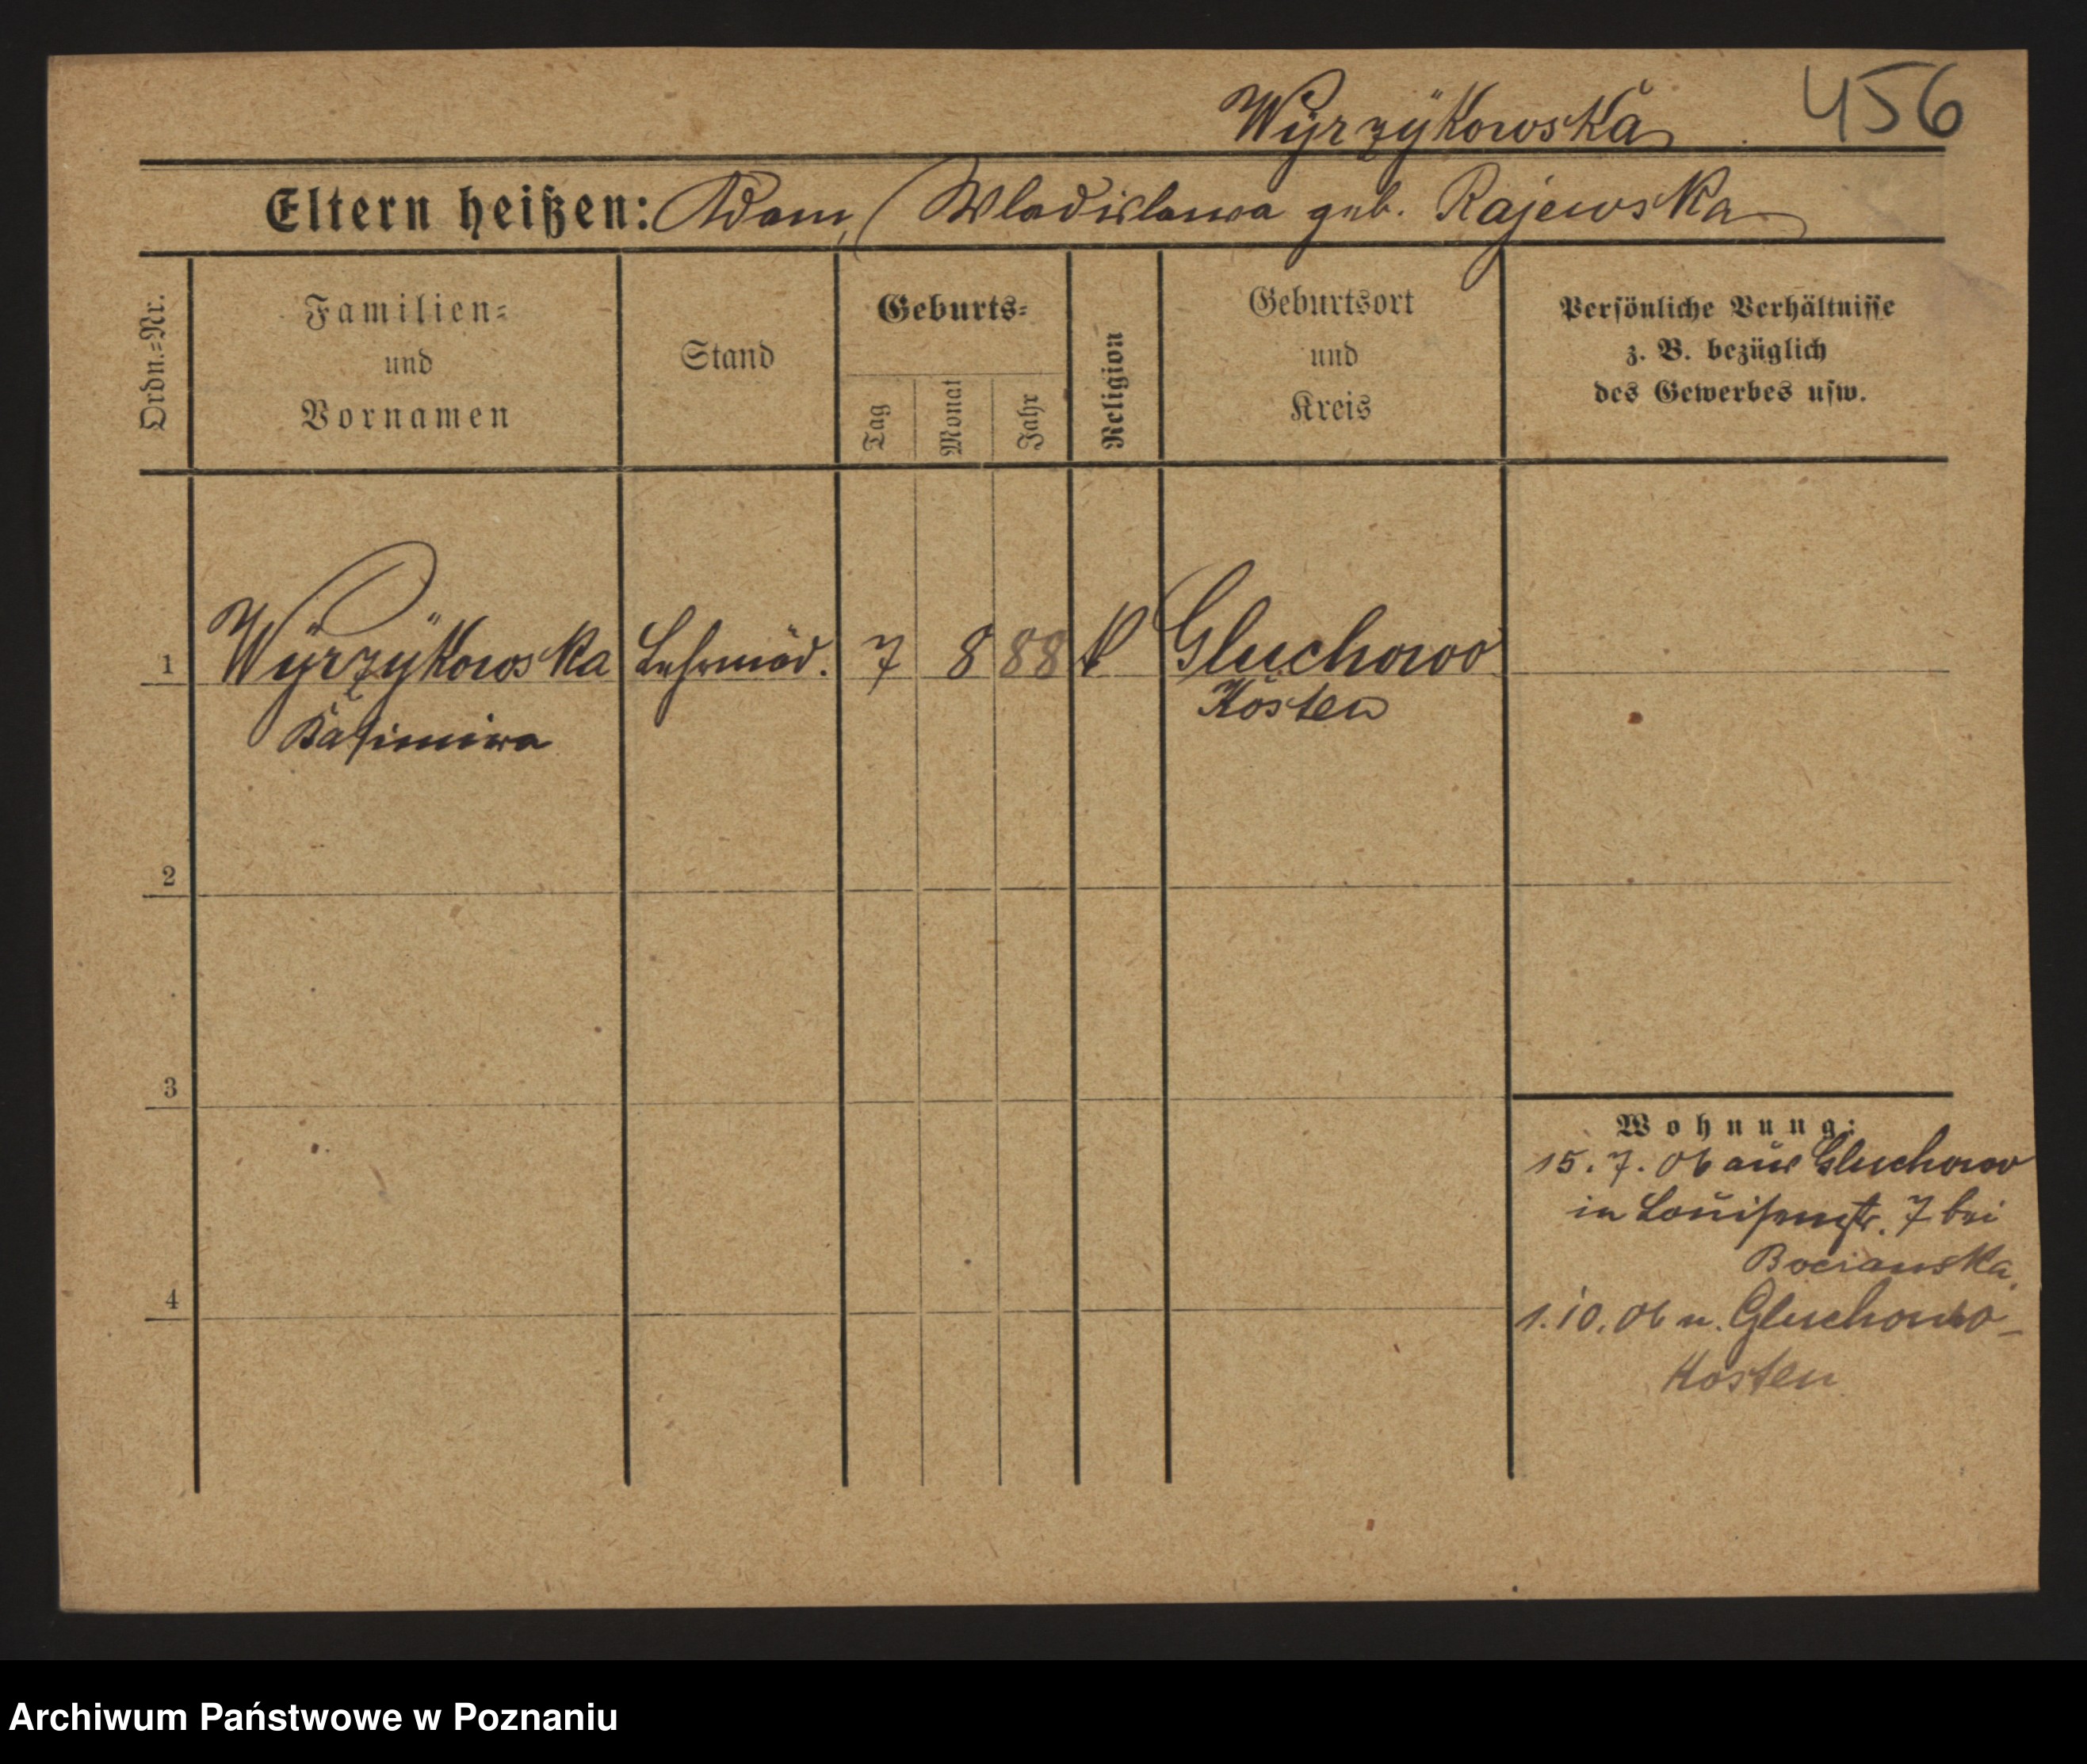 Wyrzykowska 456
Eltern heißen: Adam, Wladislawa geb. Rajewska
Ordn.-Nr.
Familien-
und
Vornamen
Stand
Geburts-
Tag
Monat
Jahr
Religion
Geburtsort
und
Kreis
Persönliche Verhältnisse
z. B. bezüglich
des Gewerbes usw.
1 Wyrzykowska Lehrmäd. 7 8 88 k Gluchowo
Kasimira Kosten
2
3
4
Wohnung:
15.7.06 aus Gluchowo
in Louisenstr. 7 bei
Bocianska
1.10.06 n. Gluchowo-
Kosten
Archiwum Państwowe w Poznaniu